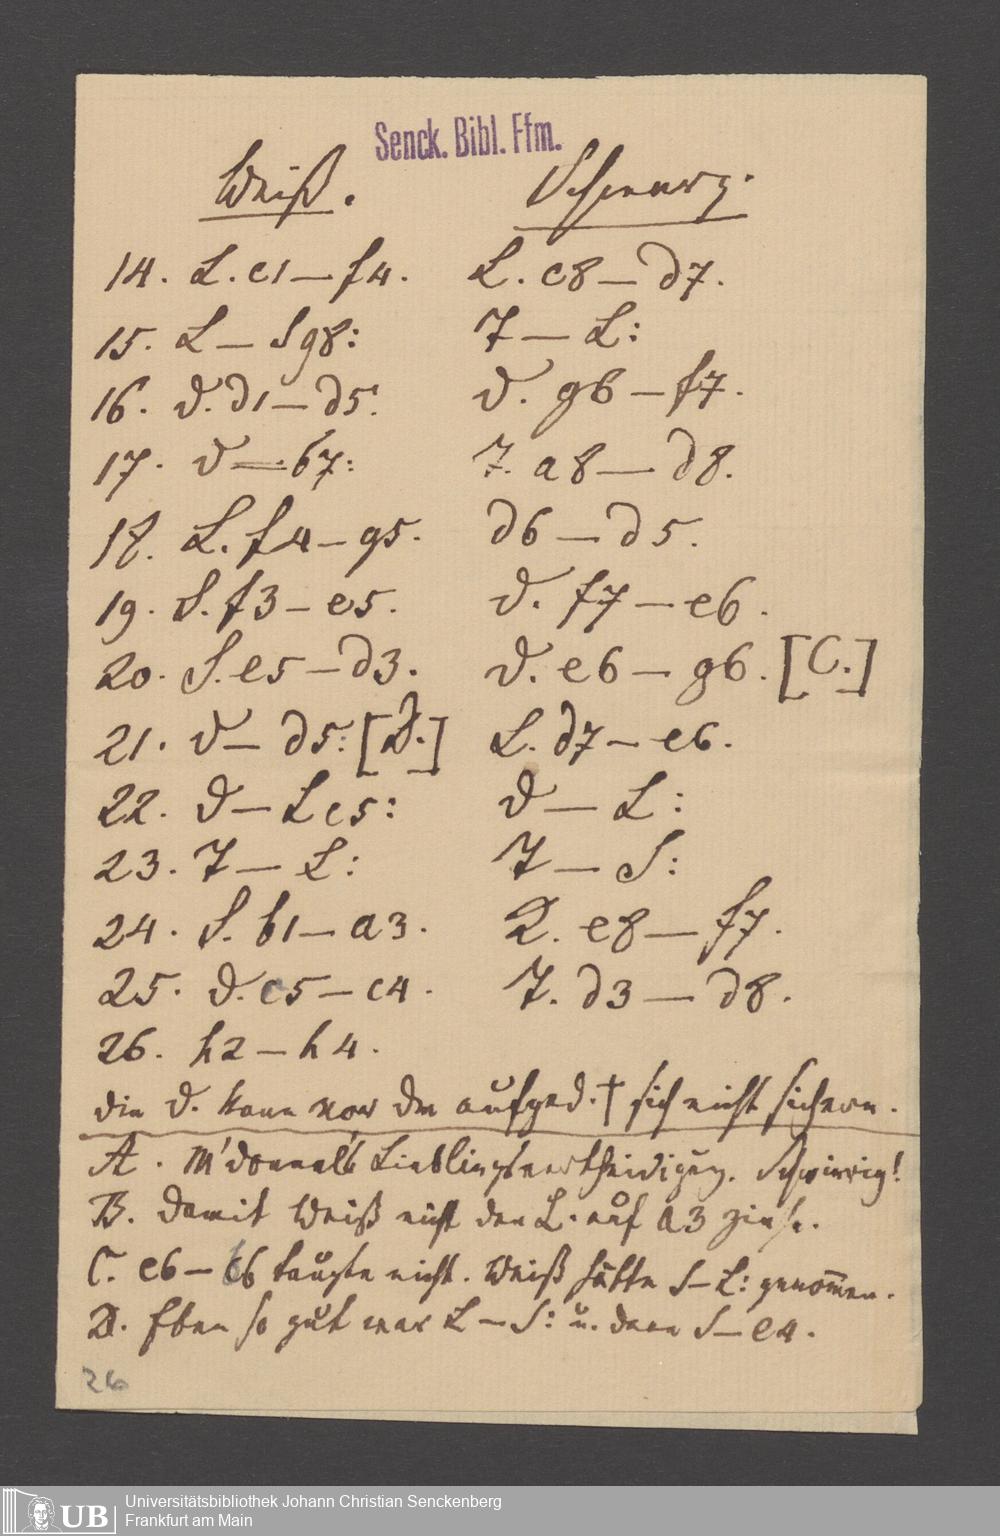 Senck. Bibl. Ffm.
Weiß. Schwarz.
14. L. c1 — f4. L. c8 — d7.
15. L — Sg8: T — L:
16. D. d1 — d5. D. g6 — f7.
17. D — b7: T. a8 — d8.
18. L. f4 — g5. d6 — d5.
19. S. f3 — e5. D. f7 — e6.
20. S. e5 — d3. D. e6 — g6. [C.]
21. D — d5: [D.] L. d7 — e6.
22. D — Lc5: D — L:
23. T — L: T — S:
24. S. b1 — a3. K. e8 — f7.
25. D. c5 — c4. T. d3 — d8.
26. h2 — h4.
die D. kann vor dem aufged. † sich nicht sichern.
A. M'donnel's Lieblingsvertheidigung. Schwierig!
B. Damit Weiß nicht den L. auf a3 ziehe.
C. e6 — b6 taugte nicht. Weiß hätte S — L: genommen.
D. Eben so gut war L — S: u. dann S — e4.
26
UB
Universitätsbibliothek Johann Christian Senckenberg
Frankfurt am Main